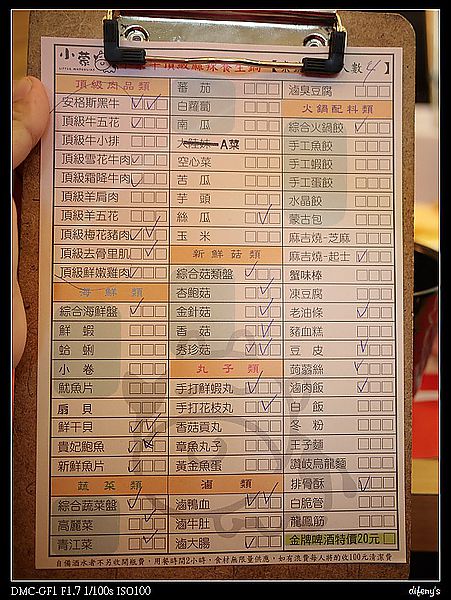 小蒙
頂級麻辣養生鍋
人數
頂級肉品類
安格斯黑牛
頂級牛五花
頂級牛小排
頂級雪花牛肉
頂級霜降牛肉
頂級羊肩肉
頂級羊五花
頂級梅花豬肉
頂級去骨里肌
頂級鮮嫩雞肉
海鮮類
綜合海鮮盤
鮮蝦
蛤蜊
小卷
魷魚片
扇貝
鮮干貝
貴妃鮑魚
新鮮魚片
蔬菜類
綜合蔬菜盤
高麗菜
青江菜
番茄
白蘿蔔
南瓜
大陸妹 A菜
空心菜
苦瓜
芋頭
絲瓜
玉米
新鮮菇類
綜合菇類盤
杏鮑菇
金針菇
香菇
秀珍菇
丸子類
手打鮮蝦丸
手打花枝丸
香菇貢丸
章魚丸子
黃金魚蛋
滷類
滷鴨血
滷牛肚
滷大腸
滷臭豆腐
火鍋配料類
綜合火鍋餃
手工魚餃
手工蝦餃
手工蛋餃
水晶餃
蒙古包
麻吉燒-芝麻
麻吉燒-起士
蟹味棒
凍豆腐
老油條
豬血糕
豆皮
蒟蒻絲
滷肉飯
白飯
冬粉
王子麵
讚岐烏龍麵
排骨酥
白脆管
龍鳳筋
金牌啤酒特價20元
自備酒水者不另收開瓶費，用餐時間2小時，食材無限量供應，如有浪費每人將酌收100元清潔費
DMC-GF1 F1.7 1/100s ISO100
difeny's